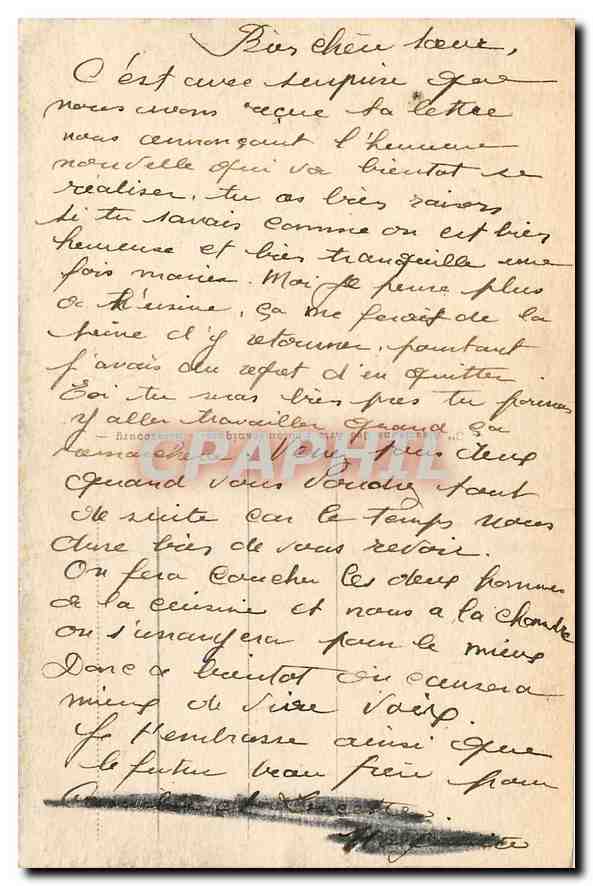 Bien chère soeur,
C'est avec surprise que
nous avons reçue ta lettre
nous annonçant l'heureuse
nouvelle qui va bientot se
réaliser, tu as bien raison
si tu savais comme on est bien
heureuse et bien tranquille une
fois mariée. Moi je pense plus
à l'usine, ça me ferait de la
peine d'y retourner, pourtant
j'avais du regret d'en quitter
Toi tu seras bien près tu pourras
y aller travailler quand ça
remarchera Venez tous deux
quand vous voudrez tout
de suite car le temps nous
dure bien de vous revoir.
On fera coucher les deux hommes
à la cuisine et nous à la chambre
on s'arrangera pour le mieux
Donc à bientot on causera
mieux de vive voix.
Je t'embrasse ainsi que
le futur beau frère pour
CPAPHIL